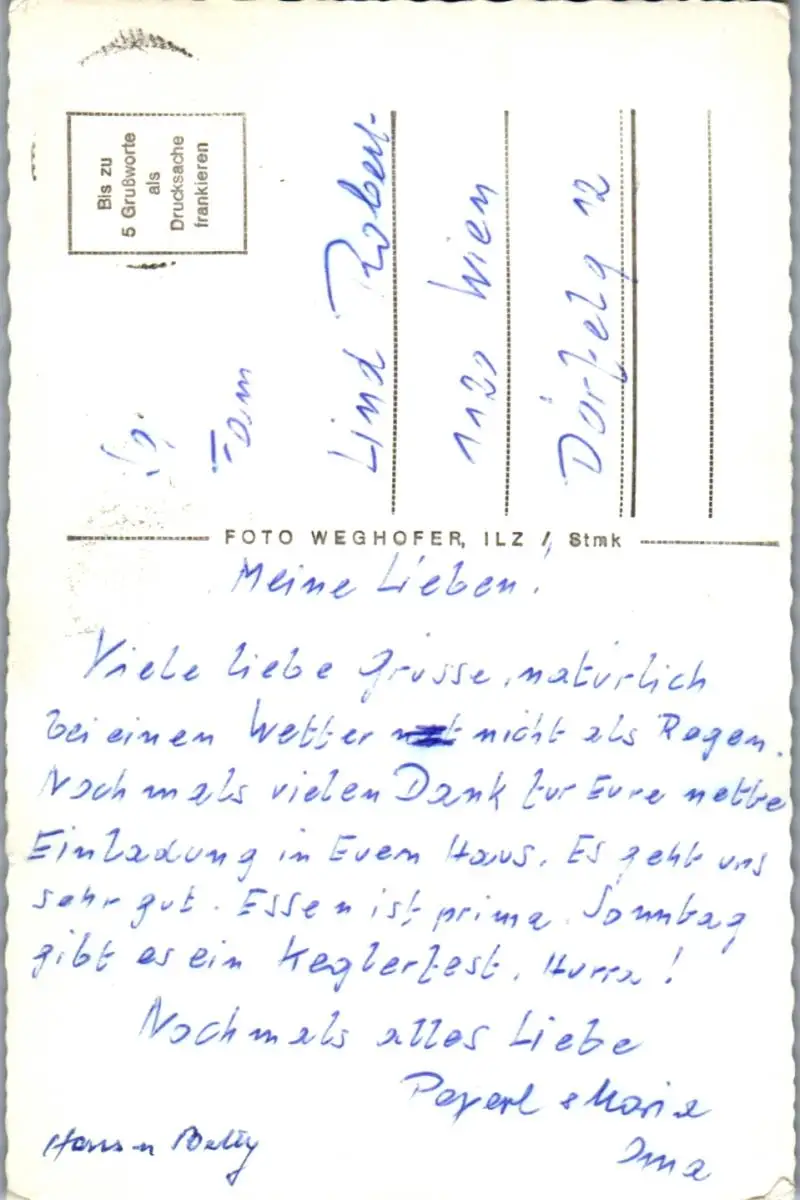 Bis zu
5 Grußworte
als
Drucksache
frankieren
Fam
Lind Robert
1120 Wien
Dörfelg 12
FOTO WEGHOFER, ILZ / Stmk
Meine Lieben!
Viele liebe Grüsse, natürlich
bei einen Wetter nicht als Regen.
Nochmals vielen Dank für Eure nette
Einladung in Euern Haus. Es geht uns
sehr gut. Essen ist prima. Sonntag
gibt es ein Keglerfest. Hurra!
Nochmals alles Liebe
& Maria
Hans u Betty
Oma